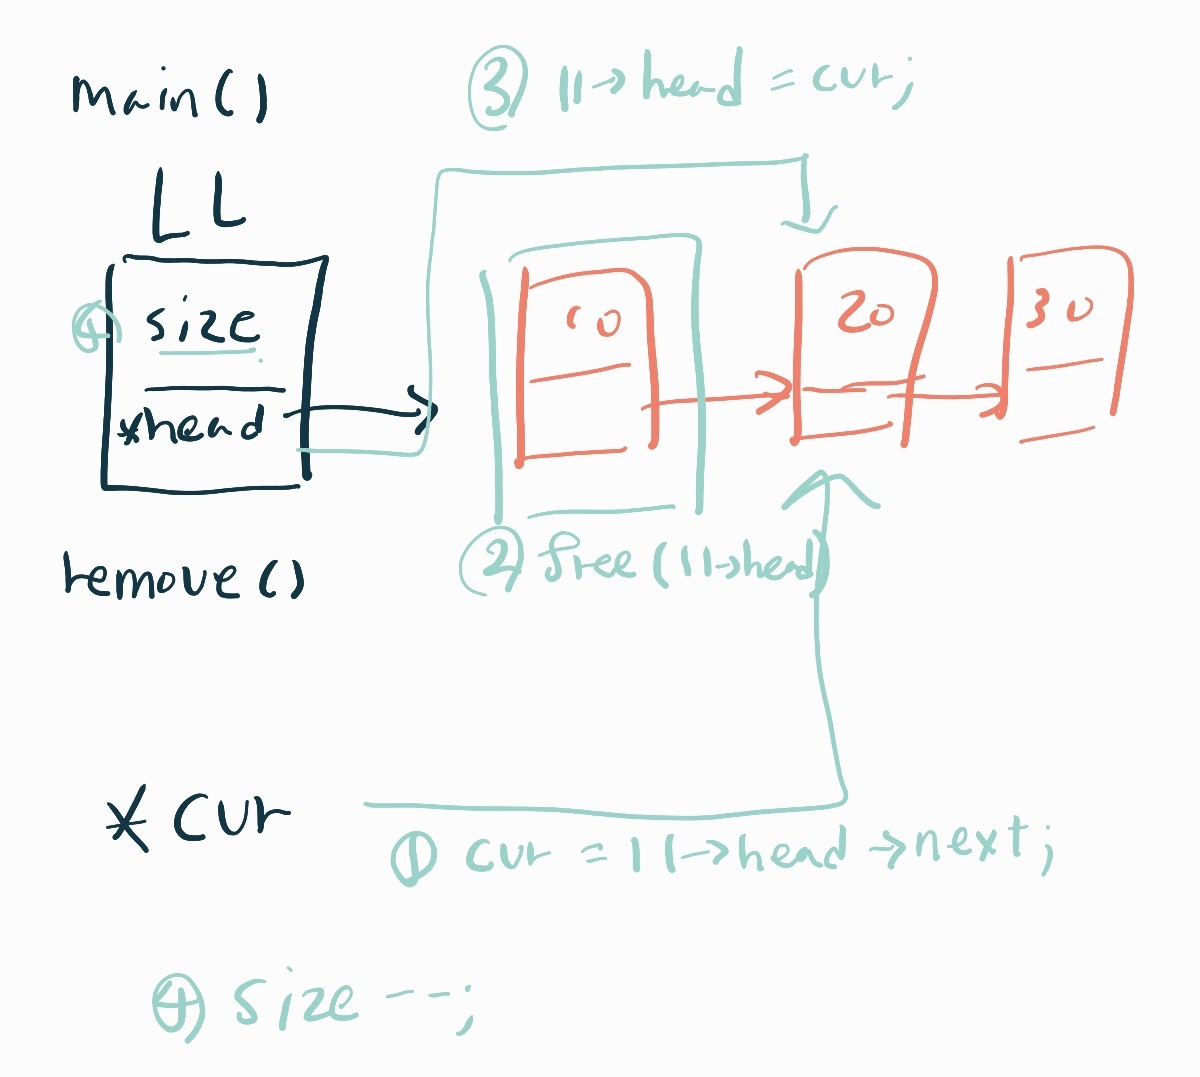 main()
③ ll→head = cur;
LL
④ size
*head
10
20
30
remove()
② free(ll→head)
*cur
① cur = ll→head→next;
④ size--;